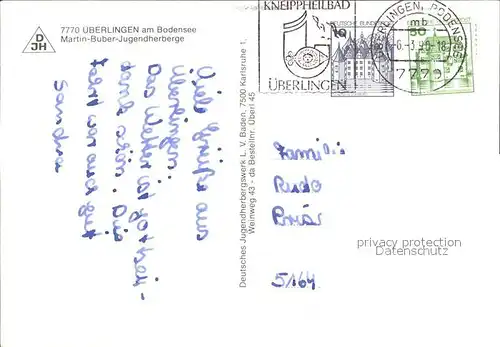 DJH
7770 ÜBERLINGEN am Bodensee
Martin-Buber-Jugendherberge
Viele Grüße aus
Überlingen.
Das Wetter ist gott sei
dank schön. Die
Fahrt war auch gut
Sandra
Deutsches Jugendherbergswerk L. V. Baden, 7500 Karlsruhe 1,
Weinweg 43 - da Bestellnr. Überl 45
KNEIPPHEILBAD
ÜBERLINGEN
DEUTSCHE BUNDES
10
ÜBERLINGEN, BODENSEE
mb
-6.-3.90-18
777
50
Familie
privacy protection
Datenschutz
5/164